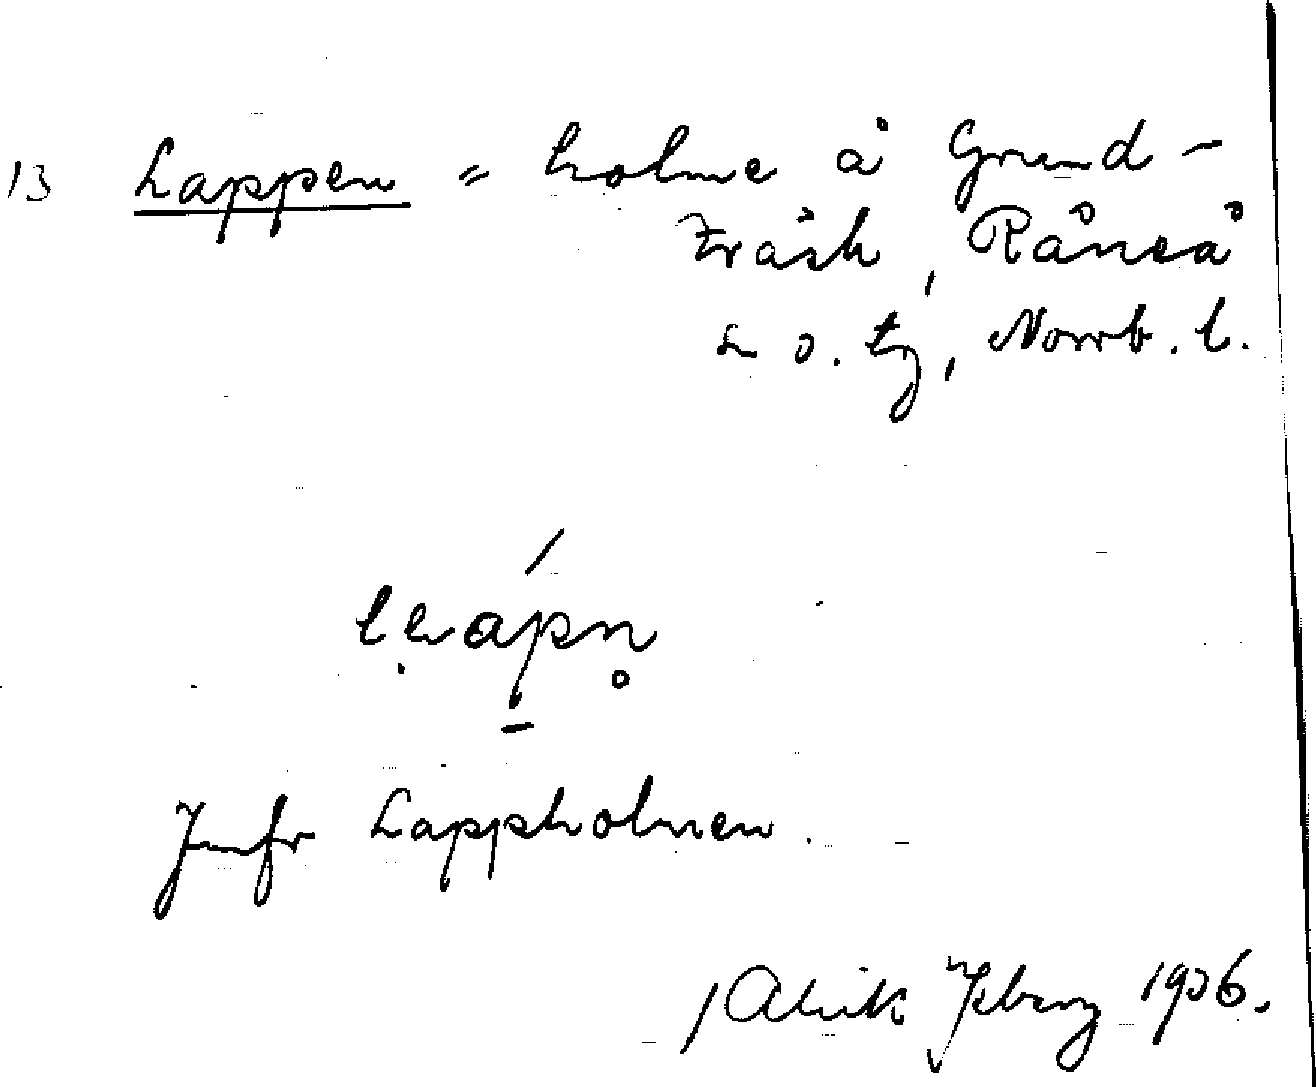 13 Lappen = holme å Grund-
träsk, Råneå
L o. tg, Norrb. l.
Jmfr Lappholmen.
/Alrik Isberg 1926.